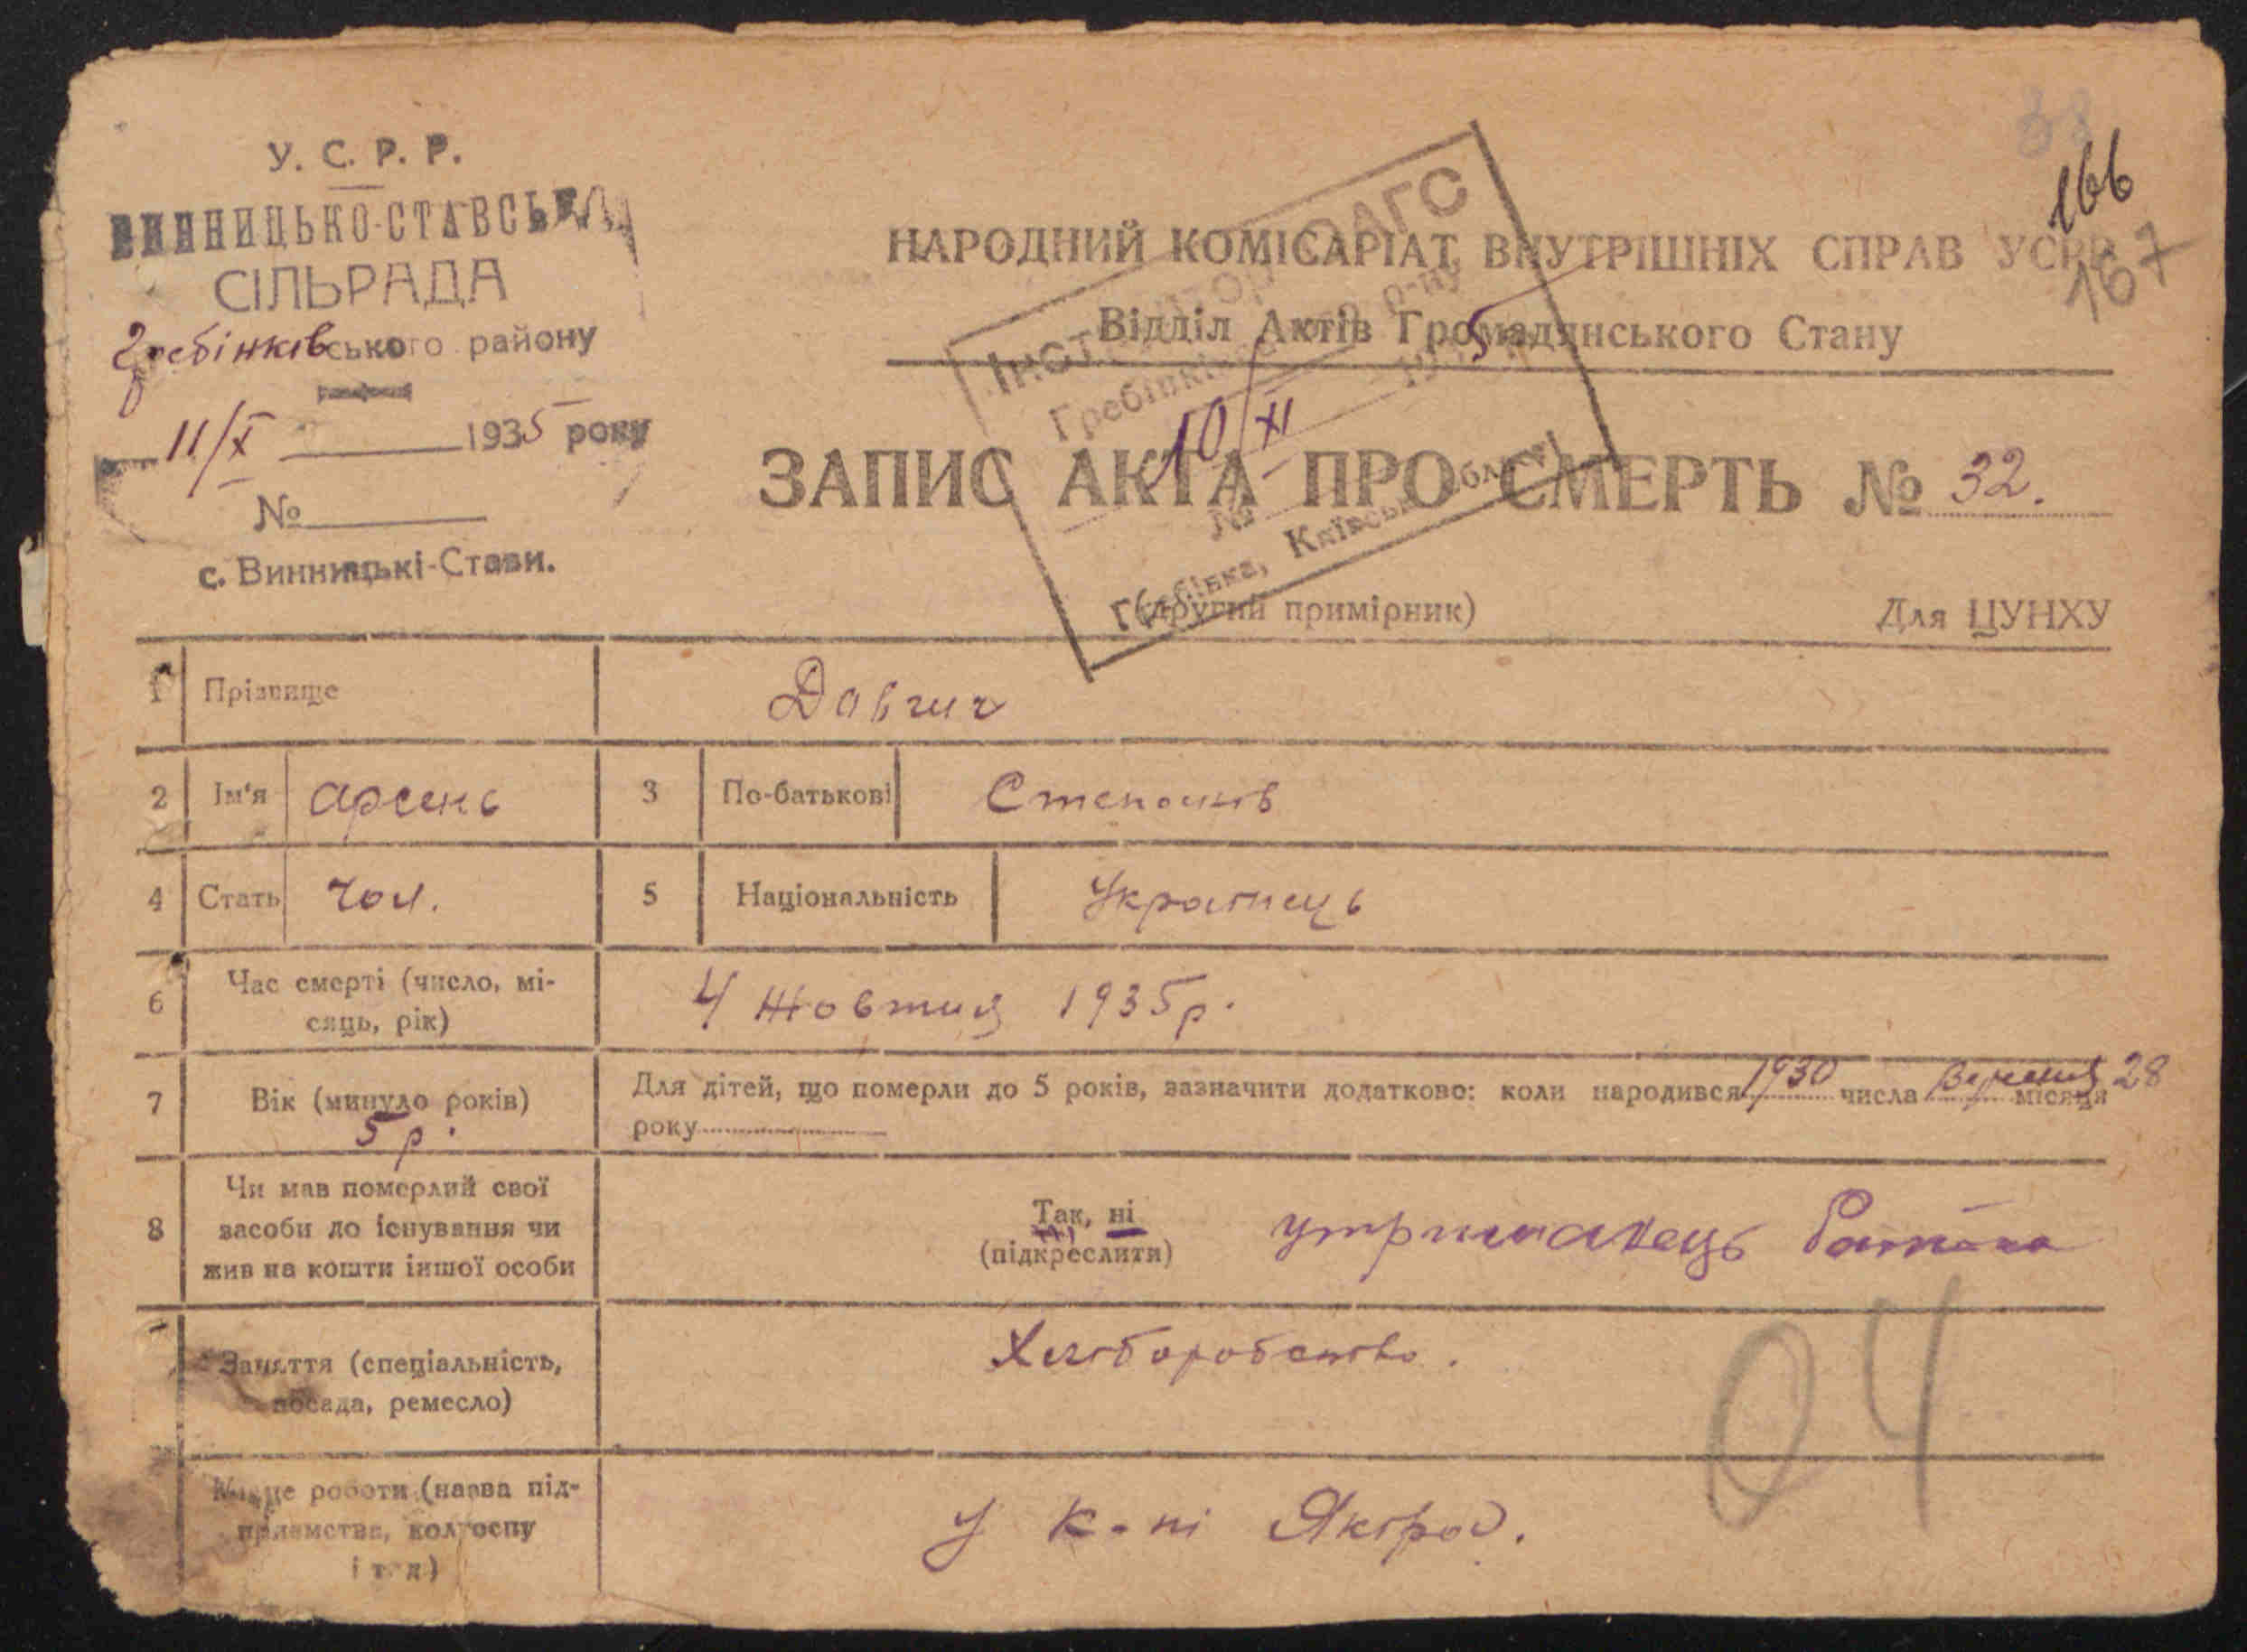 У. С. Р. Р.
ВИННИЦЬКО-СТАВСЬКА
СІЛЬРАДА
Гребінківського району
11/X 1935 року
№
с. Винницькі-Стави.
38
166
167
НАРОДНИЙ КОМІСАРІАТ ВНУТРІШНІХ СПРАВ УСРР
Відділ Актів Громадянського Стану
ЗАПИС АКТА ПРО СМЕРТЬ № 32.
(другий примірник)
Для ЦУНХУ
ЗАГС
р-ну
10/XI 1935
№
Гребінка, Київської області
1 Прізвище Довгич
2 Ім'я Арсень 3 По-батькові Степанів
4 Стать Чол. 5 Національність Українець
6 Час смерті (число, мі-
сяць, рік) 4 Жовтня 1935 р.
7 Вік (минуло років) 5 р. Для дітей, що померли до 5 років, зазначити додатково: коли народився 1930 числа Вересня місяця 28
року
8 Чи мав померлий свої
засоби до існування чи
жив на кошти іншої особи
Так, ні
(підкреслити)
утриманець Батька
Заняття (спеціальність,
посада, ремесло) Хліборобство.
Місце роботи (назва під-
приємства, колгоспу
і т. д.) У к-пі
04